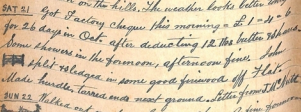 on the hills. The weather looks better
SAT 21 Got Factory Cheque this morning = £1-4-6
for 26 days in Oct. after deducting 12 lbs butter & shares
Some showers in the forenoon, afternoon fine. John
split & sledged in some good firewood off Flat.
Made hurdler tarred ends next ground. Letter from
SUN 22 Walked out